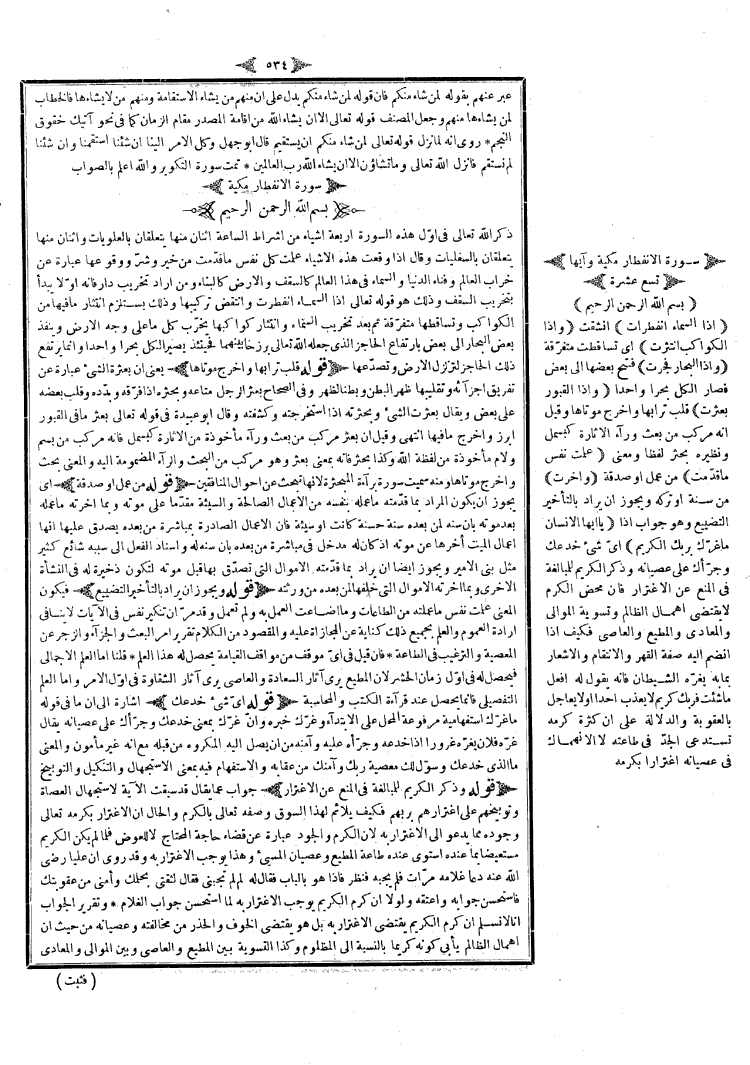 ٥٣٤
عبر عنهم بقوله لمن شاء منكم فان قوله لمن شاء منكم يدل على ان منهم من يشاء الاستقامة ومنهم من لا يشاءها فالخطاب
لمن يشاءها منهم وجعل المصنف قوله تعالى الا ان يشاء الله من اقامة المصدر مقام الزمان كما فى نحو آتيك خفوق
النجم * روى انه لما نزل قوله تعالى لمن شاء منكم ان يستقيم قال ابو جهل وكل الامر الينا ان شئنا استقمنا وان شئنا
لم نستقم فانزل الله تعالى وما تشاؤن الا ان يشاء الله رب العالمين * تمت سورة التكوير والله اعلم بالصواب
سورة الانفطار مكية
بسم الله الرحمن الرحيم
ذكر الله تعالى فى اول هذه السورة اربعة اشياء من اشراط الساعة اثنان منها يتعلقان بالعلويات واثنان منها
يتعلقان بالسفليات وقال اذا وقعت هذه الاشياء علمت كل نفس ماقدمت من خير وشر ووقوعها عبارة عن
خراب العالم وفناء الدنيا و السماء فى هذا العالم كالسقف والارض كالبناء ومن اراد تخريب دار فانه اولا يبدأ
بتخريب السقف وذلك هو قوله تعالى اذا السماء انفطرت وانتقض تركيبها وذلك يستلزم انتثار مافيها من
الكواكب وتساقطها متفرقة ثم بعد تخريب السماء وانتثار كواكبها يخرب كل ماعلى وجه الارض وينفذ
بعض البحار الى بعض بارتفاع الحاجز الذى جعله الله تعالى برزخا بينهما فحينئذ يصير الكل بحرا واحدا وانما يرتفع
ذلك الحاجز لتزلزل الارض وتصدعها ﴿ قوله قلب ترابها واخرج موتاها ﴾ يعنى ان بعثرة الشئ عبارة عن
تفريق اجزآئه وتقليبها ظهر البطن وبطنا لظهر وفى الصحاح بعثر الرجل متاعه وبحثره اذا فرقه وبدده وقلب بعضه
على بعض ويقال بعثرت الشئ وبحثرته اذا استخرجته وكشفته وقال ابو عبيدة فى قوله تعالى بعثر مافى القبور
ابرز واخرج مافيها انتهى وقيل ان بعثر مركب من بعث ورآء مأخوذة من الاثارة كبسمل فانه مركب من بسم
ولام مأخوذة من لفظة الله وكذا بحثر فانه بمعنى بعثر وهو مركب من البحث والرآء المضمومة اليه والمعنى بحث
واخرج موتاها ومنه سميت سورة برآءة المبعثرة لانها بحثت عن احوال المنافقين ﴿ قوله من عمل او صدقة ﴾ اى
يجوز ان يكون المراد بما قدمته ماعمله بنفسه من الاعمال الصالحة و السيئة مقدما على موته و بما اخرته ماعمله
بعد موته بان سنه لمن بعده سنة حسنة كانت او سيئة فان الاعمال الصادرة بمباشرة من بعده يصدق عليها انها
اعمال الميت أخرها عن موته اذ كان له مدخل فى مباشرة من بعده بان سنه له و اسناد الفعل الى سببه شائع كثير
مثل بنى الامير ويجوز ايضا ان يراد بما قدمته الاموال التى تصدق بها قبل موته لتكون ذخيرة له فى النشأة
الاخرى وبما اخرته الاموال التى خلفها لمن بعده من ورثته ﴿ قوله ويجوز ان يراد بالتأخير التضييع ﴾ فيكون
المعنى علمت نفس ماعملته من الطاعات وما اضاعت العمل به ولم تعمل وقد مر ان تنكير نفس فى الآيات لا ينافى
ارادة العموم والعلم بجميع ذلك كناية عن المجازاة عليه والمقصود من الكلام تقرير امر البعث والجزآء والزجر عن
المعصية والترغيب فى الطاعة * فان قيل فى اى موقف من مواقف القيامة يحصل له هذا العلم * قلنا اما العلم الاجمالى
فيحصل له فى اول زمان الحشر لان المطيع يرى آثار السعادة والعاصى يرى آثار الشقاوة فى اول الامر واما العلم
التفصيلى فانما يحصل عند قرآءة الكتب والمحاسبة ﴿ قوله اى شئ خدعك ﴾ اشارة الى ان ما فى قوله
ماغرك استفهامية مرفوعة المحل على الابتدآء وغرك خبره وان غرك بمعنى خدعك وجرأك على عصيانه يقال
غره فلان يغره غرورا اذا خدعه وجرأه عليه و آمنه من ان يصل اليه المكروه من قبله مع انه غير مأمون والمعنى
ما الذى خدعك وسول لك معصية ربك وآمنك من عقابه والاستفهام فيه بمعنى الاستجهال والتنكيل والتوبيخ
﴿ قوله وذكر الكريم للمبالغة فى المنع عن الاغترار ﴾ جواب عما يقال قد سيقت الآية لاستجهال العصاة
وتوبيخهم على اغترارهم بربهم فكيف يلائم لهذا السوق وصفه تعالى بالكرم والحال ان الاغترار بكرمه تعالى
وجوده مما يدعو الى الاغترار به لان الكرم والجود عبارة عن قضاء حاجة المحتاج لا للعوض فلما لم يكن الكريم
مستعيضا بما عنده استوى عنده طاعة المطيع وعصيان المسئ وهذا يوجب الاغترار به وقد روى ان عليا رضى
الله عنه دعا غلامه مرات فلم يجبه فنظر فاذا هو بالباب فقال له لم لم تجبنى فقال لثقتى بحلمك وأمنى من عقوبتك
فاستحسن جوابه واعتقه ولولا ان كرم الكريم يوجب الاغترار به لما استحسن جواب الغلام * وتقرير الجواب
انا لا نسلم ان كرم الكريم يقتضى الاغترار به بل هو يقتضى الخوف والحذر من مخالفته وعصيانه من حيث ان
اهمال الظالم يأبى كونه كريما بالنسبة الى المظلوم وكذا التسوية بين المطيع و العاصى وبين الموالى والمعادى
( فثبت )
سورة الانفطار مكية وآيها
تسع عشرة
( بسم الله الرحمن الرحيم )
( اذا السماء انفطرت ) انشقت ( واذا
الكواكب انتثرت ) اى تساقطت متفرقة
( واذا البحار فجرت ) فتح بعضها الى بعض
فصار الكل بحرا واحدا ( واذا القبور
بعثرت ) قلب ترابها واخرج موتاها وقيل
انه مركب من بعث ورآء الاثارة كبسمل
ونظيره بحثر لفظا ومعنى ( علمت نفس
ماقدمت ) من عمل او صدقة ( واخرت )
من سنة او تركة ويجوز ان يراد بالتأخير
التضييع وهو جواب اذا ( يا ايها الانسان
ماغرك بربك الكريم ) اى شئ خدعك
وجرأك على عصيانه وذكر الكريم للمبالغة
فى المنع عن الاغترار فان محض الكرم
لايقتضى اهمال الظالم وتسوية الموالى
والمعادى والمطيع والعاصى فكيف اذا
انضم اليه صفة القهر والانتقام والاشعار
بما به يغره الشيطان فانه يقول له افعل
ماشئت فربك كريم لايعذب احدا اولا يعاجل
بالعقوبة والدلالة على ان كثرة كرمه
تستدعى الجد فى طاعته لا الانهماك
فى عصيانه اغترارا بكرمه